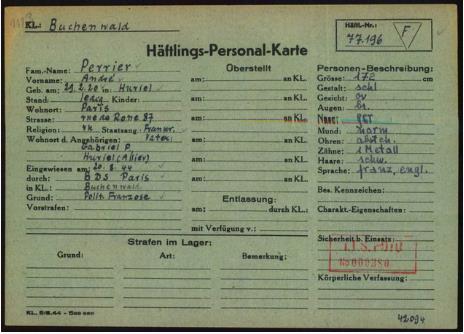 KL.: Buchenwald
Häftl.-Nr.:
77.196
F
Häftlings-Personal-Karte
Fam.-Name: Perrier
Vorname: André
Geb. am: 29.2.20 in: Huriel
Stand: ledig Kinder:
Wohnort: Paris
Strasse: rue de Rome 87
Religion: rk Staatsang.: Franzr.
Wohnort d. Angehörigen: Vater:
Gabriel P.
Huriel (Allier)
Eingewiesen am: 20.8.44
durch: BDS Paris
in KL.: Buchenwald
Grund: Polit. Franzose
Vorstrafen:
Überstellt
am: an KL.
am: an KL.
am: an KL.
am: an KL.
am: an KL.
am: an KL.
Entlassung:
am: durch KL.:
mit Verfügung v.:
Personen-Beschreibung:
Grösse: 172 cm
Gestalt: schl
Gesicht: ov
Augen: br.
Nase:
Mund: norm
Ohren: absteh.
Zähne: 1 Metall
Haare: schw.
Sprache: franz, engl.
Bes. Kennzeichen:
Charakt.-Eigenschaften:
Sicherheit b. Einsatz:
I.T.S. FOTO
No 000380
Körperliche Verfassung:
Strafen im Lager:
Grund: Art: Bemerkung:
KL. 5/6.44 - 500 000
42094